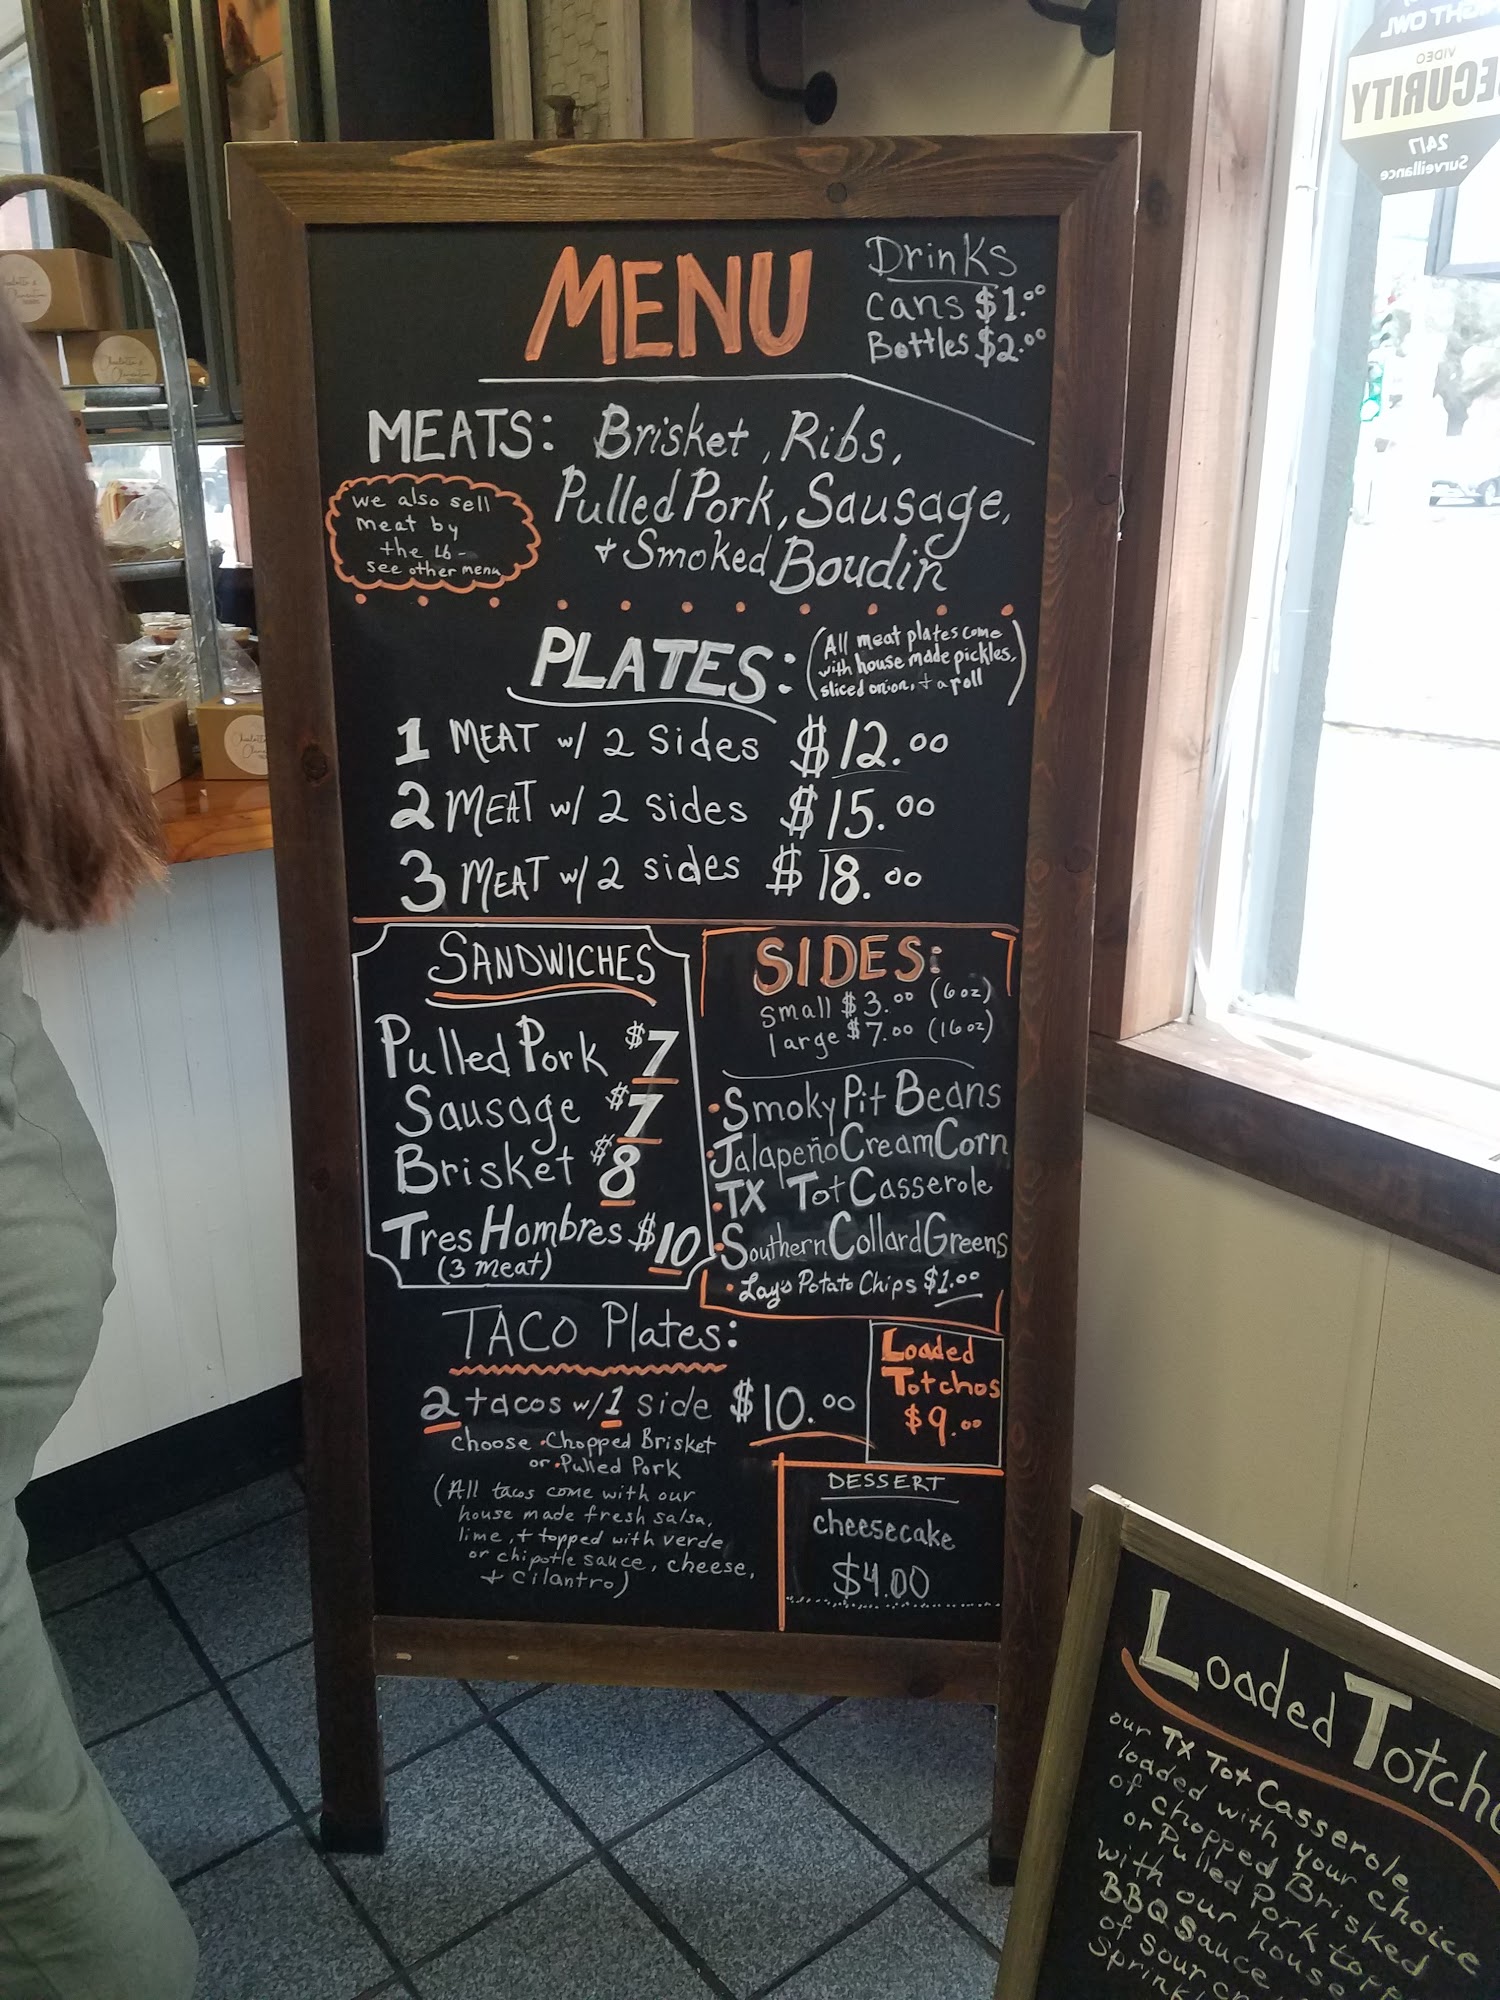 MENU
Drinks
Cans $1.00
Bottles $2.00
MEATS: Brisket, Ribs,
Pulled Pork, Sausage,
+ Smoked Boudin
we also sell
meat by
the LB -
see other menu
PLATES:
(All meat plates come
with house made pickles,
sliced onion, + a roll)
1 MEAT w/ 2 Sides $12.00
2 MEAT w/ 2 sides $15.00
3 MEAT w/ 2 sides $18.00
SANDWICHES
Pulled Pork $7
Sausage $7
Brisket $8
Tres Hombres $10
(3 meat)
SIDES:
small $3.00 (6oz)
large $7.00 (16oz)
•Smoky Pit Beans
•Jalapeño Cream Corn
•TX Tot Casserole
•Southern Collard Greens
•Lay's Potato Chips $1.00
TACO Plates:
2 tacos w/ 1 side $10.00
choose •Chopped Brisket
or •Pulled Pork
(All tacos come with our
house made fresh salsa,
lime, + topped with verde
or chipotle sauce, cheese,
+ cilantro)
Loaded
Totchos
$9.00
DESSERT
cheesecake
$4.00
Loaded Totcho
our TX Tot Casserole
loaded with your choice
of Chopped Brisked
or Pulled Pork topp
with our house
BBQ Sauce
of sour
Sprink
VIDEO
SECURITY
24/7
Surveillance